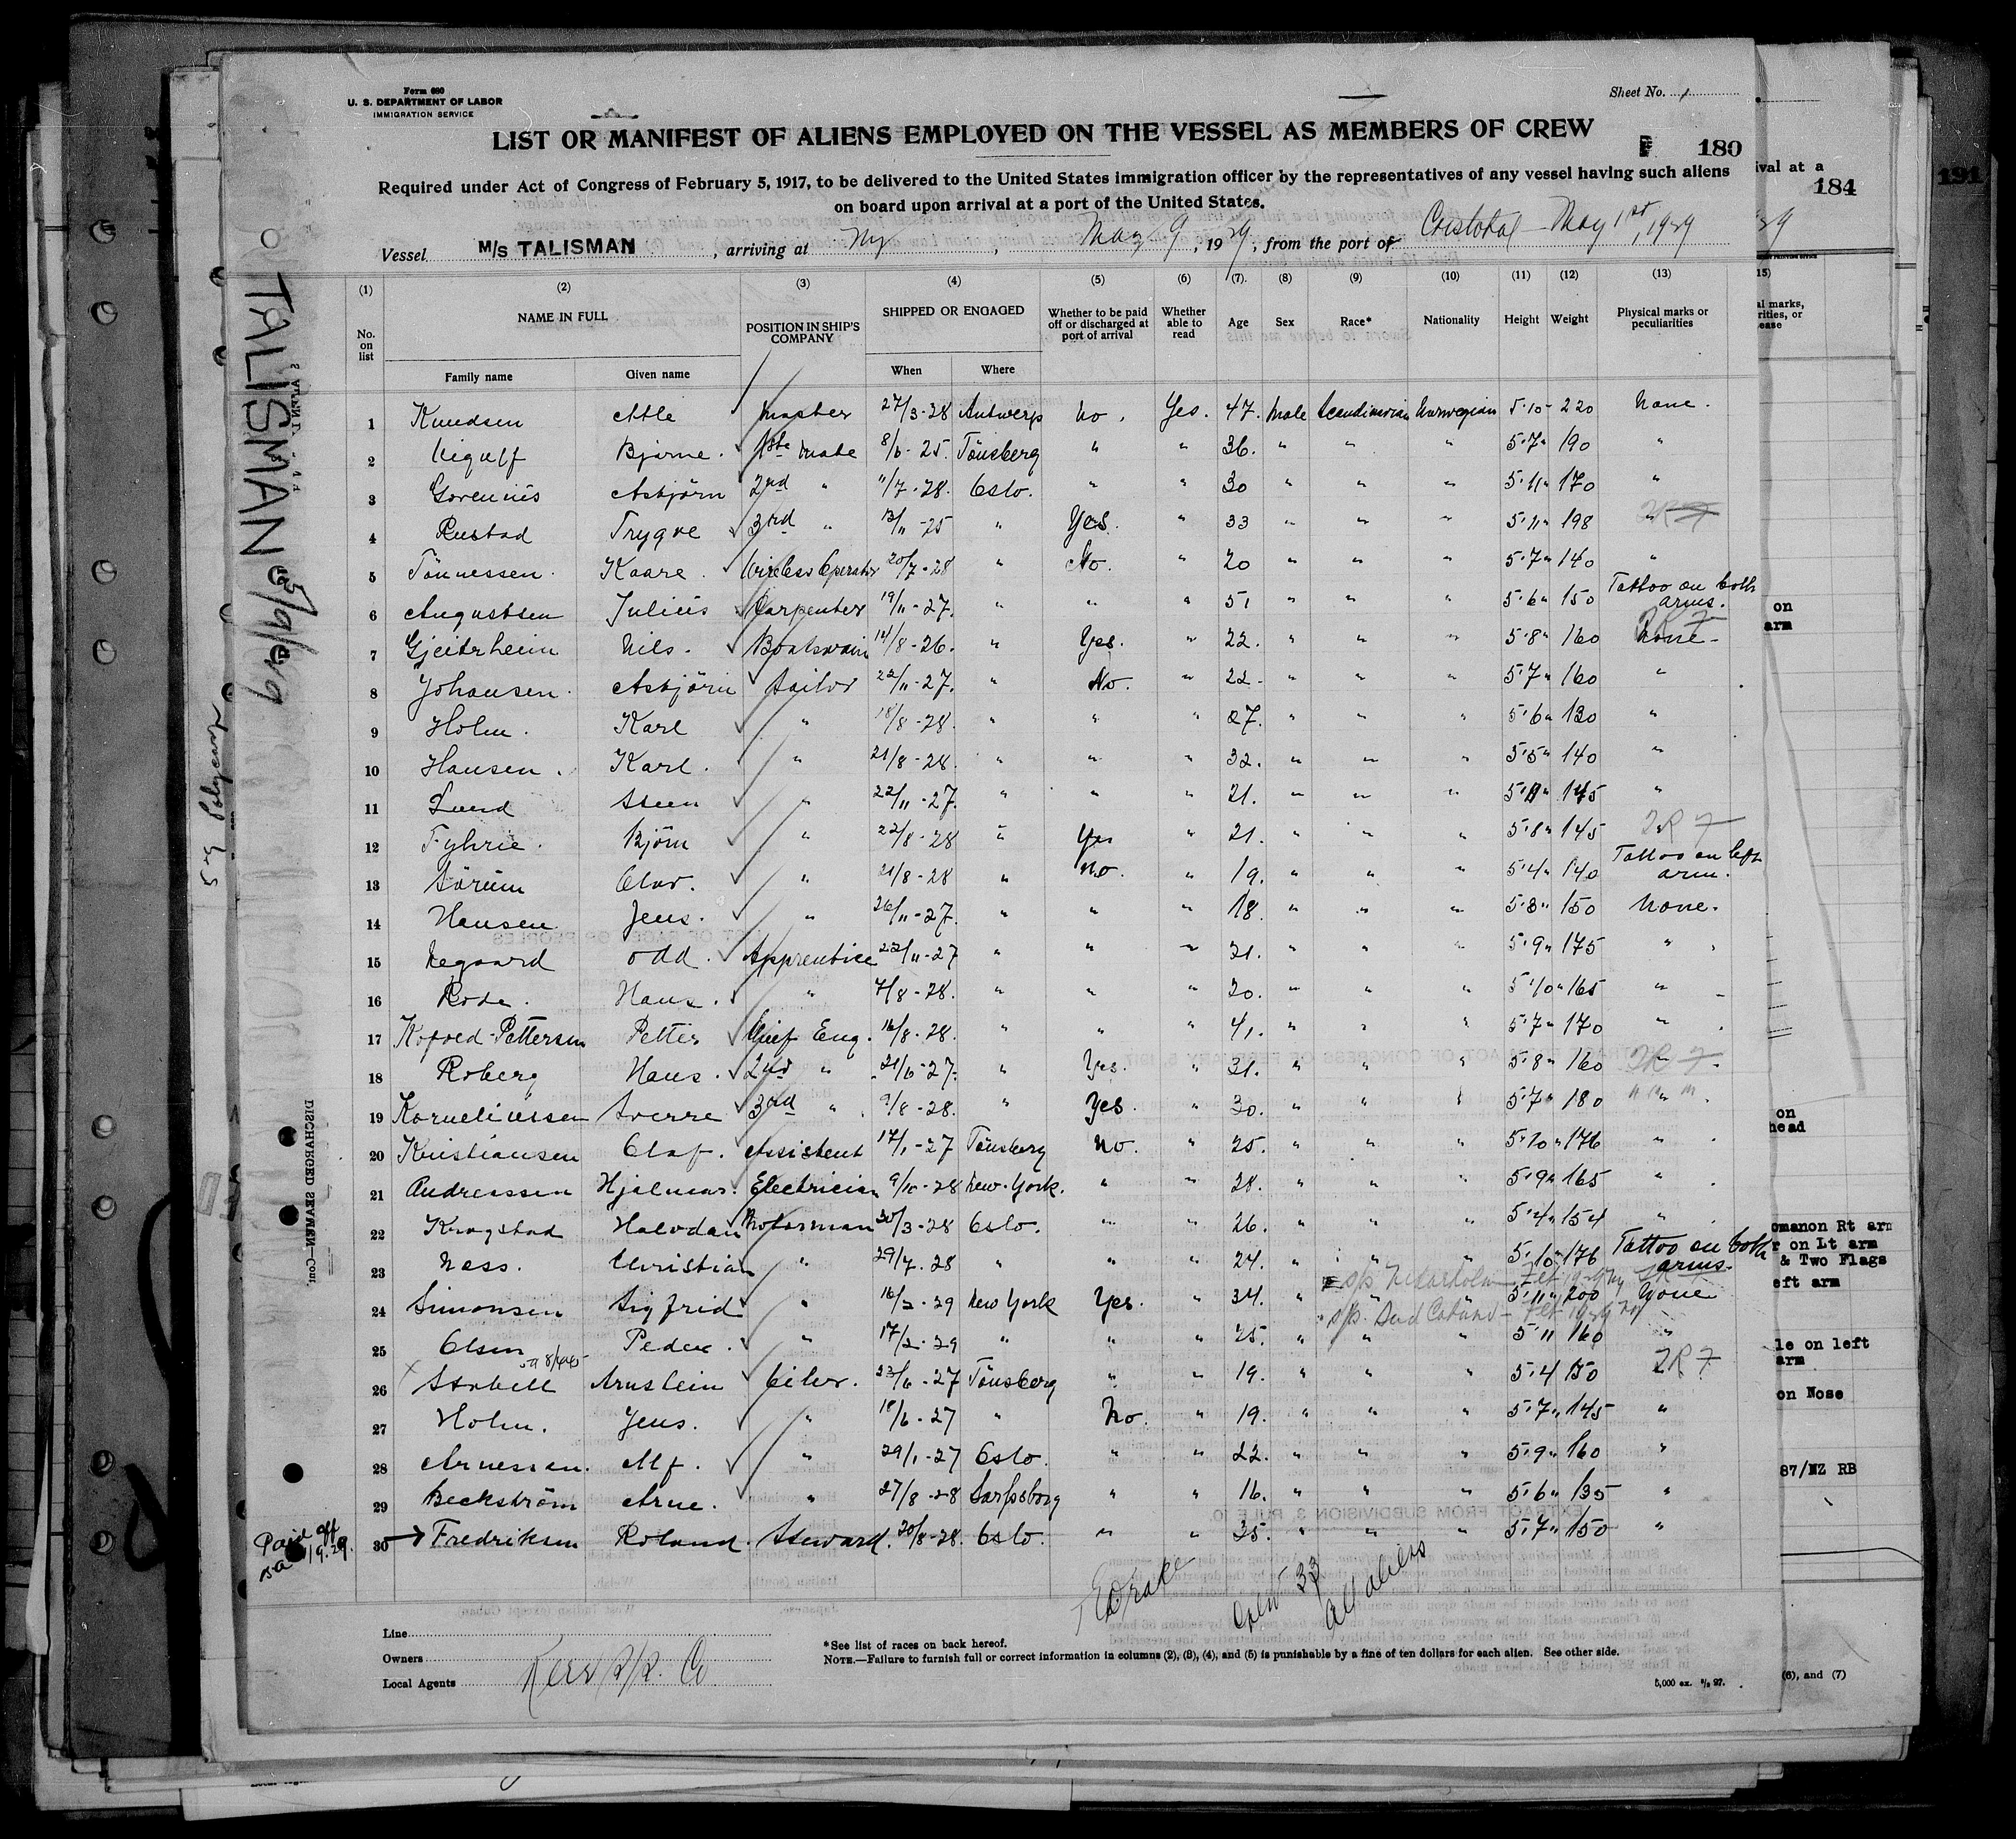 Form 680
U. S. DEPARTMENT OF LABOR
IMMIGRATION SERVICE
Sheet No. 1
LIST OR MANIFEST OF ALIENS EMPLOYED ON THE VESSEL AS MEMBERS OF CREW
180
Required under Act of Congress of February 5, 1917, to be delivered to the United States immigration officer by the representatives of any vessel having such aliens
on board upon arrival at a port of the United States.
Vessel M/S TALISMAN, arriving at Ny, May 9, 1929, from the port of Cristobal May 1st, 1929
(1) (2) (3) (4) (5) (6) (7) (8) (9) (10) (11) (12) (13)
No. on list NAME IN FULL POSITION IN SHIP'S COMPANY SHIPPED OR ENGAGED Whether to be paid off or discharged at port of arrival Whether able to read Age Sex Race* Nationality Height Weight Physical marks or peculiarities
Family name Given name When Where
1 Knudsen Atle Master 27/3-28 Antwerp no. Yes. 47. Male Scandinavian Norwegian 5'10" 220 None.
2 Bjarne. 1ste Mate 8/6-25. Tönsberg " " 36. " " " 5'7" 190 "
3 Asbjörn 2nd " 11/7-28. Oslo. " " 30 " " " 5'11" 170 "
4 Rustad Trygve 3rd " 13/11-25 " Yes. " 33 " " " 5'11" 198 "
5 Tönnessen. Kaare. Wireless Operator 20/7-28 " No. " 20 " " " 5'7" 140 "
6 Augustsen Julius Carpenter 19/11-27. " " " 51 " " " 5'6" 150 Tattoo on both arms.
7 Gjeiterheim Nils. Boatswain 14/8-26. " Yes. " 22. " " " 5'8" 160 None-
8 Johansen. Asbjörn Sailor 22/11-27. " No. " 22- " " " 5'7" 160 "
9 Holm. Karl " 18/8-28. " " " 27. " " " 5'6" 130 "
10 Hansen. Karl. " 21/8-28. " " " 32. " " " 5'5" 140 "
11 Lund Steen " 22/11-27. " " " 21. " " " 145 "
12 Fyhrie. Björn " 22/8-28 " Yes " 21. " " " 5'8" 145 2R7
13 Sörum Olav. " 21/8-28 " no. " 19. " " " 5'4" 140 Tattoo on left arm.
14 Hansen Jens. " 26/11-27. " " " 18. " " " 5'8" 150 None.
15 Negaard Odd. Apprentice 22/11-27 " " " 21. " " " 5'9" 175 "
16 Rode. Hans. " 7/8-28. " " " 20. " " " 5'10" 165 "
17 Kofoed-Pettersen Petter Chief Eng. 16/8-28. " " " 41. " " " 5'7" 170 "
18 Roberg Hans. 2nd " 21/6-27. " Yes. " 31. " " " 5'8" 160 2R7
19 Korneliussen Sverre 3rd " 9/8-28. " Yes " 30. " " " 5'7" 180 "
20 Kristiansen Olaf. Assistent 17/1-27 Tönsberg no. " 25. " " " 5'10" 176 "
21 Andreassen Hjalmar. Electrician 9/10-28 New-York. " " 28. " " " 5'9" 165 "
22 Krogstad Halvdan Motorman 30/3-28 Oslo. " " 26. " " " 5'4" 154 "
23 Næss. Christian " 29/7.28 " " " 24. " " " 5'10" 176 Tattoo on both arms.
24 Simonsen Sigfrid " 16/2-29 New York Yes. " 34. " " " 5'11" 200 None
25 Olsen Peder. " 17/2-29 " " " 25. " " " 5'11 160 "
26 Stabell Arnstein Oiler. 23/6-27 Tönsberg " " 19. " " " 5'4 150 2R7
27 Holm. Jens. " 18/6-27 " No. " 19. " " " 5'7" 145 "
28 Arnessen. Alf. " 29/1-27 Oslo. " " 22. " " " 5'9" 160 "
29 Beckström Arne. " 27/8-28 Sarpsborg " " 16. " " " 5'6" 135 "
30 Fredriksen Roland. Steward. 20/8-28. Oslo. " " 35. " " " 5'7" 150 "
Paid off
Crew 33
All aliens
Line
Owners
Local Agents Kerr S/S. Co
*See list of races on back hereof.
NOTE.—Failure to furnish full or correct information in columns (2), (3), (4), and (5) is punishable by a fine of ten dollars for each alien. See other side.
TALISMAN 5/9/29
DISCHARGED SEAMEN—Con.
ival at a
184
191
15)
al marks,
rities, or
ease
on
arm
on
head
omanon Rt arm
r on Lt arm
& Two Flags
eft arm
le on left
arm
on Nose
87/NZ RB
(6), and (7)